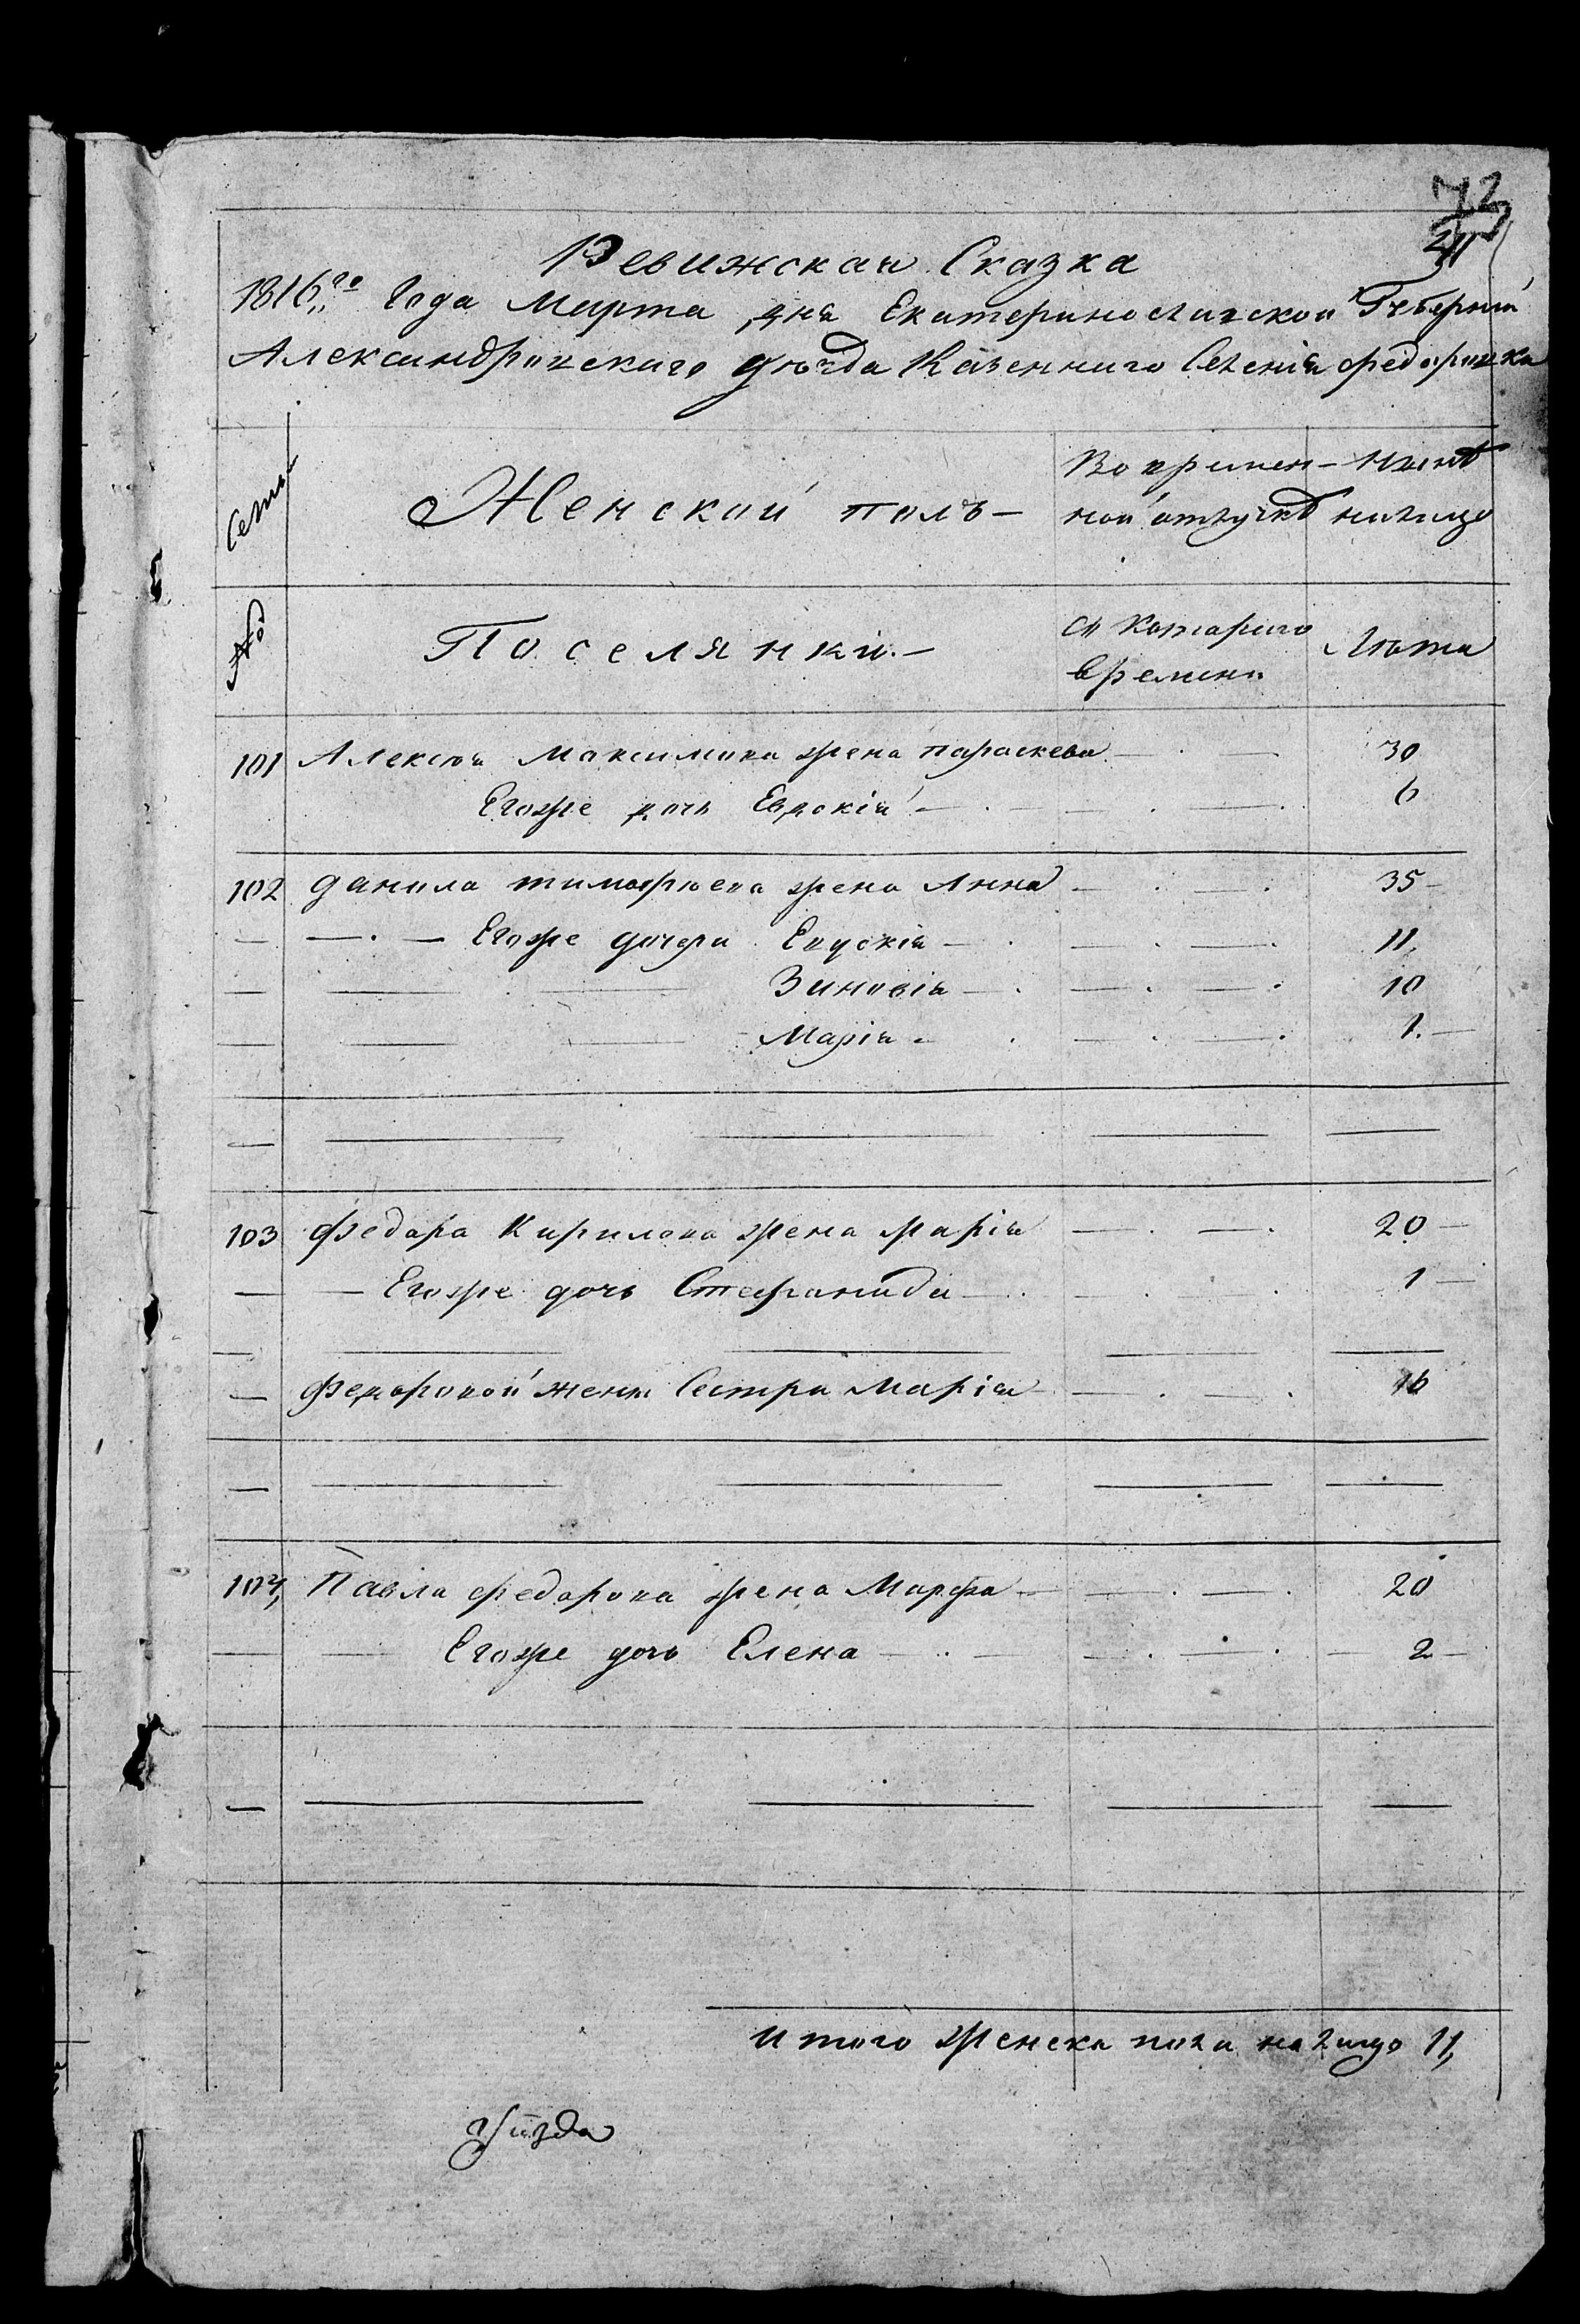 72
211
Ревижская Сказка
1816,,го Года Марта дня Екатеринославской Губерніи
Александровскаго уезда Казеннаго Селенія Федоровка
Семьи Женской полъ — Во времен- Ныне
ной отлучкѣ налицо
№ Поселянки. — Съ Котораго Лѣта
времени
101 Алексея Максимова жена Параскева 30
Егоже дочь Евдокія 6
102 Данила Тимофеева жена Анна 35
Егоже дочери Евдокія 11
Зиновія 10
Марія 1
103 Федора Кирилова жена Марія 20
Егоже дочь Стефанида 1
Федоровой жены Сестра Марія 16
104, Павла Федорова жена Марфа 20
Егоже дочь Елена 2
Итого женска пола налицо 11,
уезда